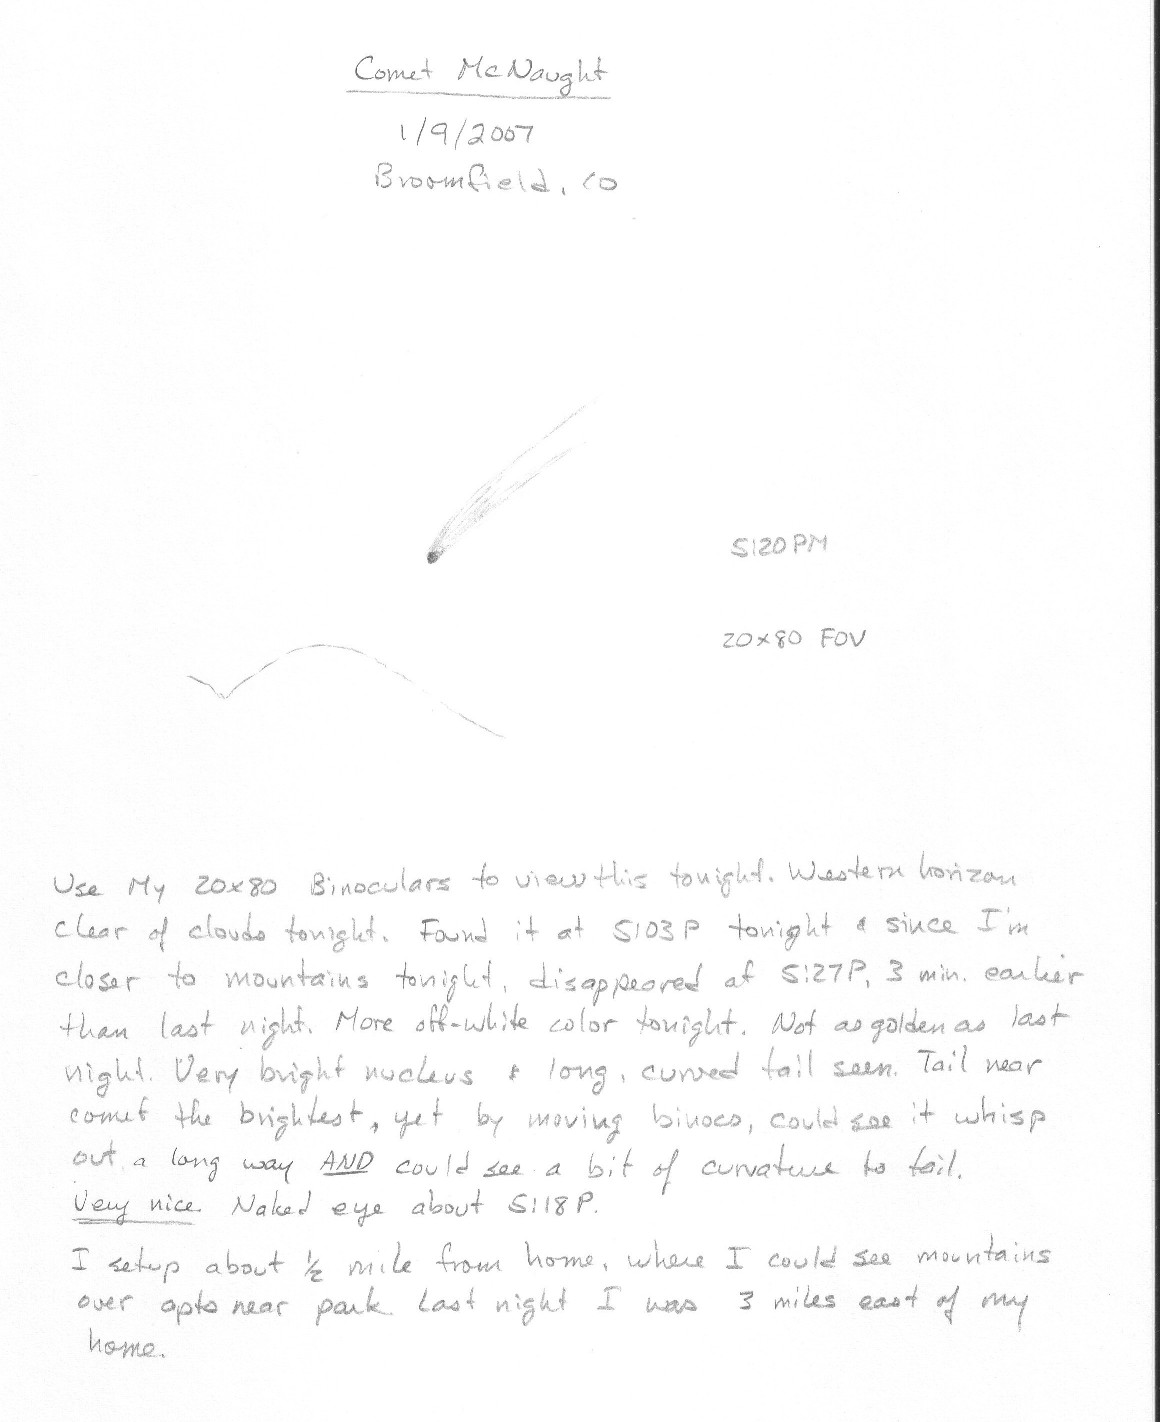 Comet McNaught
1/9/2007
Broomfield, CO
5:20 PM
20x80 FOV
Use My 20x80 Binoculars to view this tonight. Western horizon
clear of clouds tonight. Found it at 5:03 P tonight & since I'm
closer to mountains tonight, disappeared at 5:27P, 3 min. earlier
than last night. More off-white color tonight. Not as golden as last
night. Very bright nucleus & long, curved tail seen. Tail near
comet the brightest, yet by moving binocs, could see it whisp
out a long way AND could see a bit of curvature to tail.
Very nice. Naked eye about 5:18 P.
I setup about ½ mile from home, where I could see mountains
over apts near park. Last night I was 3 miles east of my
home.